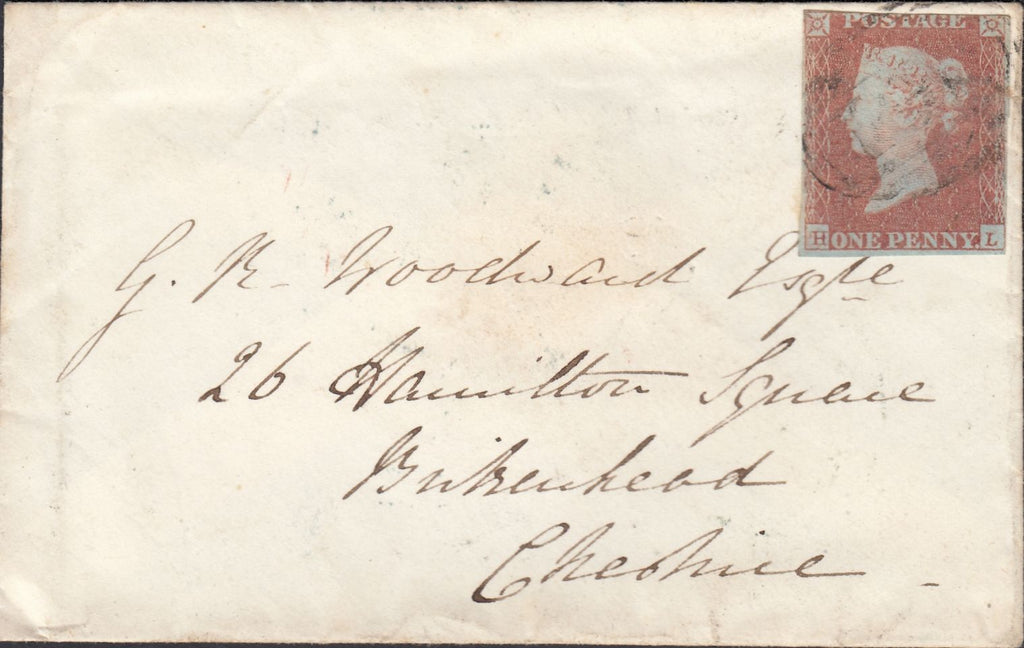 POSTAGE
H ONE PENNY. L
G. R. Woodward Esqre
26 Hamilton Square
Birkenhead
Cheshire